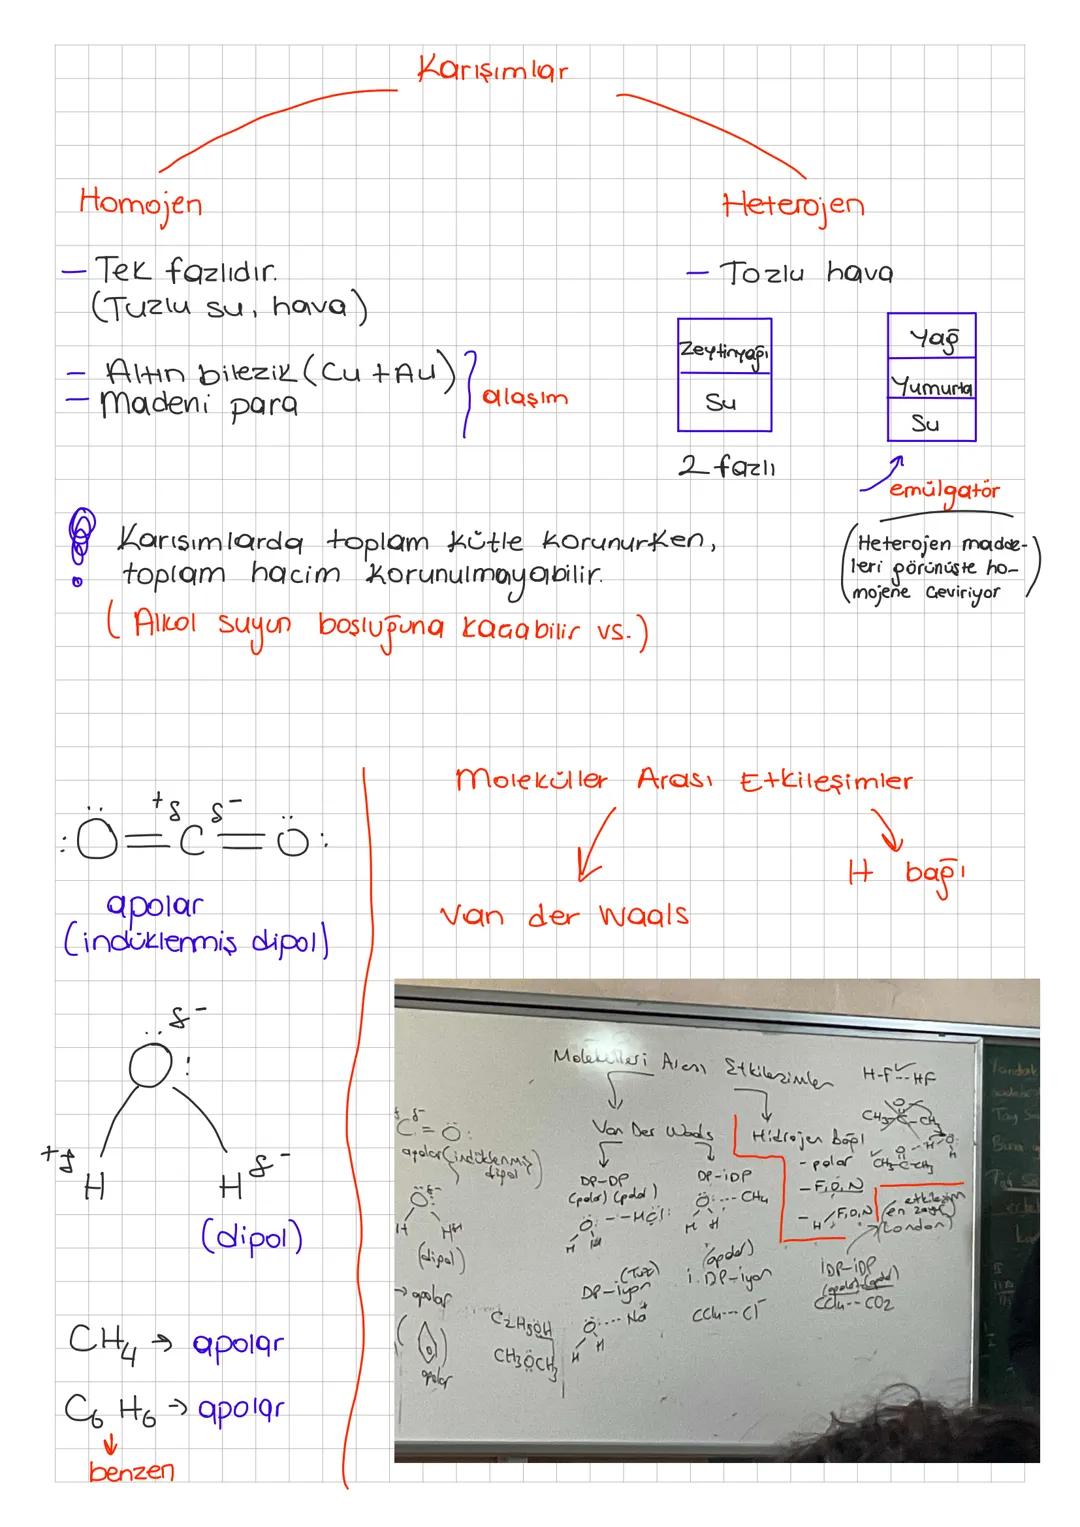 Karışımlar
Homojen
- Tek fazlıdır.
(Tuzlu su, hava)
- Altın bilezik (Cu + Au)
- Madeni para
alaşım
Heterojen
- Tozlu hava
Zeytinyağı
Su
2 fazlı
Yağ
Yumurta
Su
emülgatör
(Heterojen madde-
leri görünüşte ho-
mojene çeviriyor)
Karışımlarda toplam kütle korunurken,
toplam hacim korunulmayabilir.
(Alkol suyun boşluğuna kaçabilir vs.)
+δ δ-
:Ö=C=Ö:
apolar
(indüklenmiş dipol)
δ-
Ö:
+δ H H δ-
(dipol)
CH4 → apolar
C6H6 → apolar
benzen
Moleküller Arası Etkileşimler
Van der Waals
H bağı
Arası Etkileşimler
H-F---HF
Van Der Waals
Hidrojen bağı
- polar
- F, O, N
- H F,O,N
etkileşim
(London)
C=Ö:
apolar (indüklenmiş
dipol)
(dipol)
→ apolar
apolar
DP-DP
(polar) (polar)
DP-iDP
Ö:--- CH4
(apolar)
DP-iyon
i.DP-iyon
CCl4--- Cl-
iDP-iDP
CCl4-- CO2
C2H5OH
CH3ÖCH3